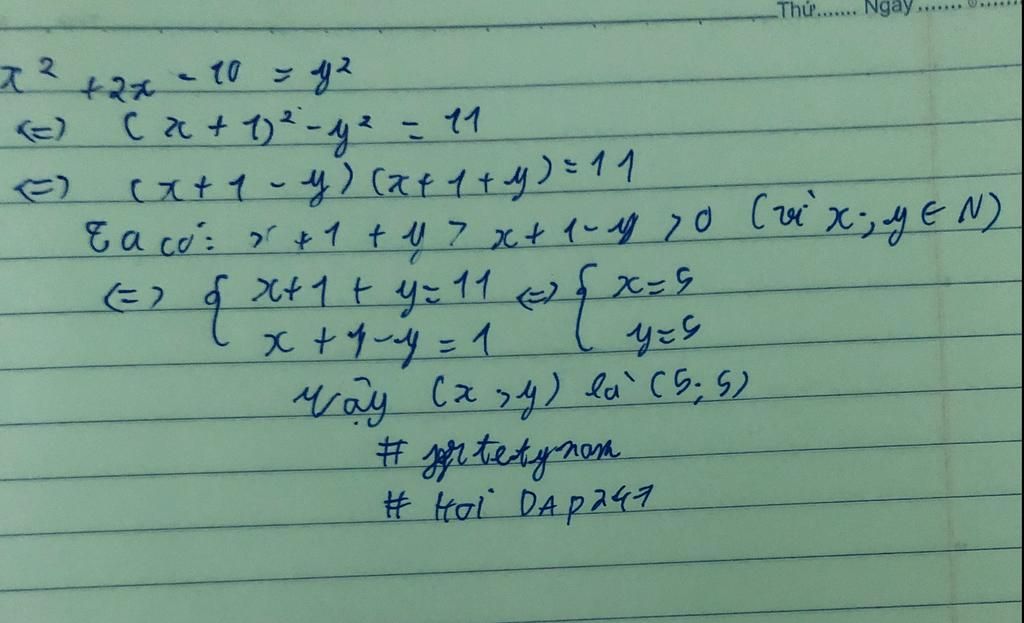 Thứ....... Ngày.......
x² + 2x - 10 = y²
<=> (x + 1)² - y² = 11
<=> (x + 1 - y) (x + 1 + y) = 11
Ta có: x + 1 + y > x + 1 - y > 0 (vì x ; y ∈ N)
<=> { x + 1 + y = 11 <=> { x = 5
x + 1 - y = 1 y = 5
Vậy (x ; y) là (5; 5)
#
# Hoi DAP247